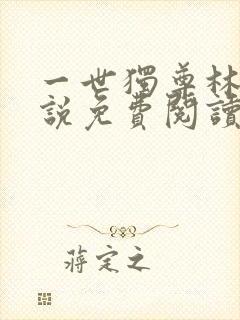 一世獨尊林
說免費閱讀
蔣定之